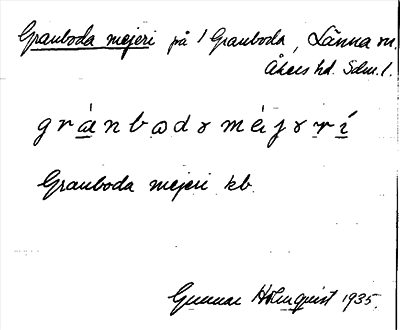 Granboda mejeri på 1 Granboda, Länna sn.
Åkers hd. Sdm.l.
grànbodɤ mèjɤrí
Granboda mejeri kb.
Gunnar Holmquist 1935.